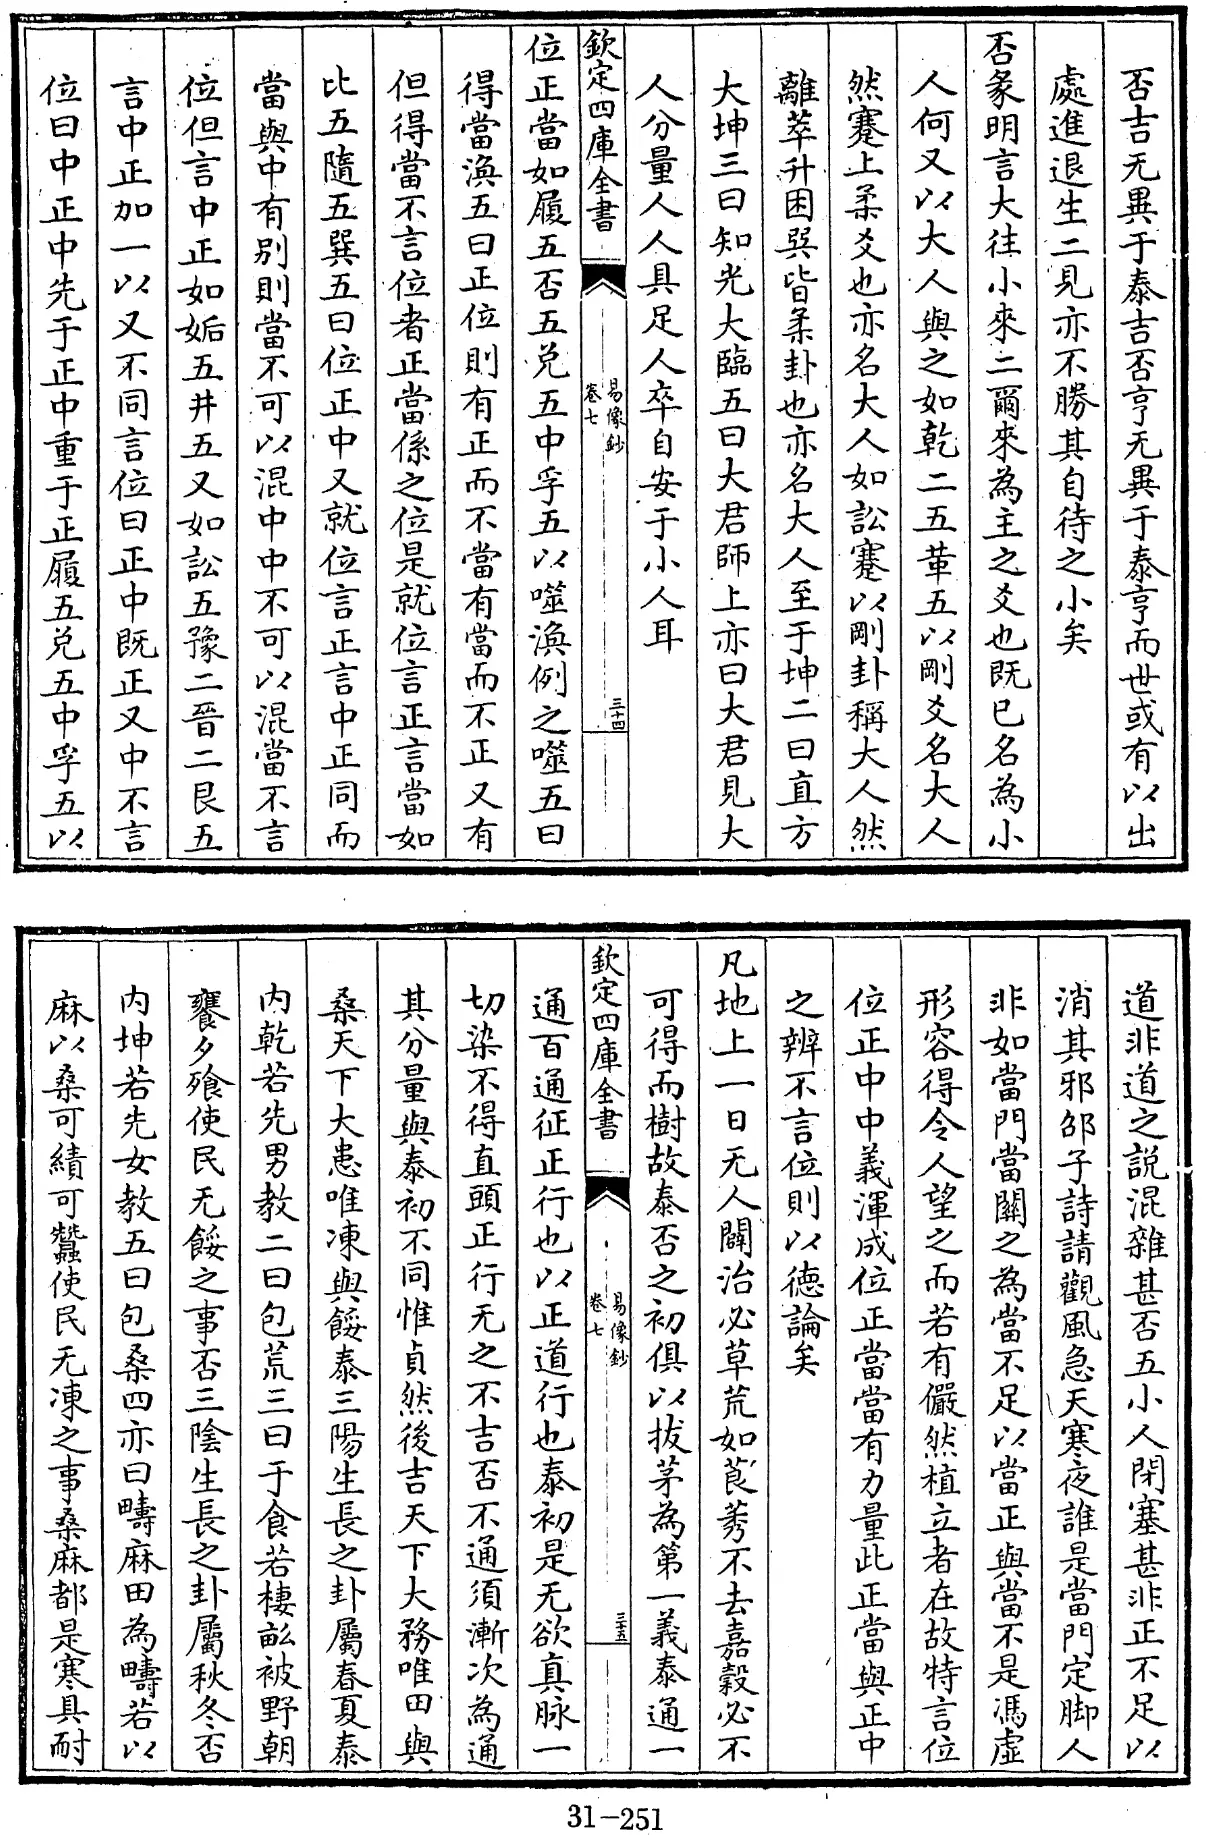 否吉无異于泰吉否亨无異于泰亨而世或有以出
處進退生二見亦不勝其自待之小矣
否彖明言大往小來二爾來為主之爻也既已名為小
人何又以大人與之如乾二五革五以剛爻名大人
然蹇上柔爻也亦名大人如訟蹇以剛卦稱大人然
離萃升困巽皆柔卦也亦名大人至于坤二曰直方
大坤三曰知光大臨五曰大君師上亦曰大君見大
人分量人人具足人卒自安于小人耳
欽定四庫全書
易像鈔
卷七
三十四
位正當如履五否五兑五中孚五以噬渙例之噬五曰
得當渙五曰正位則有正而不當有當而不正又有
但得當不言位者正當係之位是就位言正言當如
比五隨五巽五曰位正中又就位言正言中正同而
當與中有别則當不可以混中中不可以混當不言
位但言中正如姤五井五又如訟五豫二晉二艮五
言中正加一以又不同言位曰正中既正又中不言
位曰中正中先于正中重于正履五兑五中孚五以
道非道之説混雜甚否五小人閉塞甚非正不足以
消其邪邵子詩請觀風急天寒夜誰是當門定脚人
非如當門當關之為當不足以當正與當不是馮虛
形容得令人望之而若有儼然植立者在故特言位
位正中中義渾成位正當當有力量此正當與正中
之辨不言位則以德論矣
凡地上一日无人闢治必草荒如莨莠不去嘉穀必不
可得而樹故泰否之初俱以拔茅為第一義泰通一
欽定四庫全書
易像鈔
卷七
三十五
通百通征正行也以正道行也泰初是无欲真脉一
切染不得直頭正行无之不吉否不通須漸次為通
其分量與泰初不同惟貞然後吉天下大務唯田與
桑天下大患唯凍與餒泰三陽生長之卦屬春夏泰
内乾若先男教二曰包荒三曰于食若棲畝被野朝
饔夕飱使民无餒之事否三陰生長之卦屬秋冬否
内坤若先女教五曰包桑四亦曰疇麻田為疇若以
麻以桑可績可蠶使民无凍之事桑麻都是寒具耐
31-251